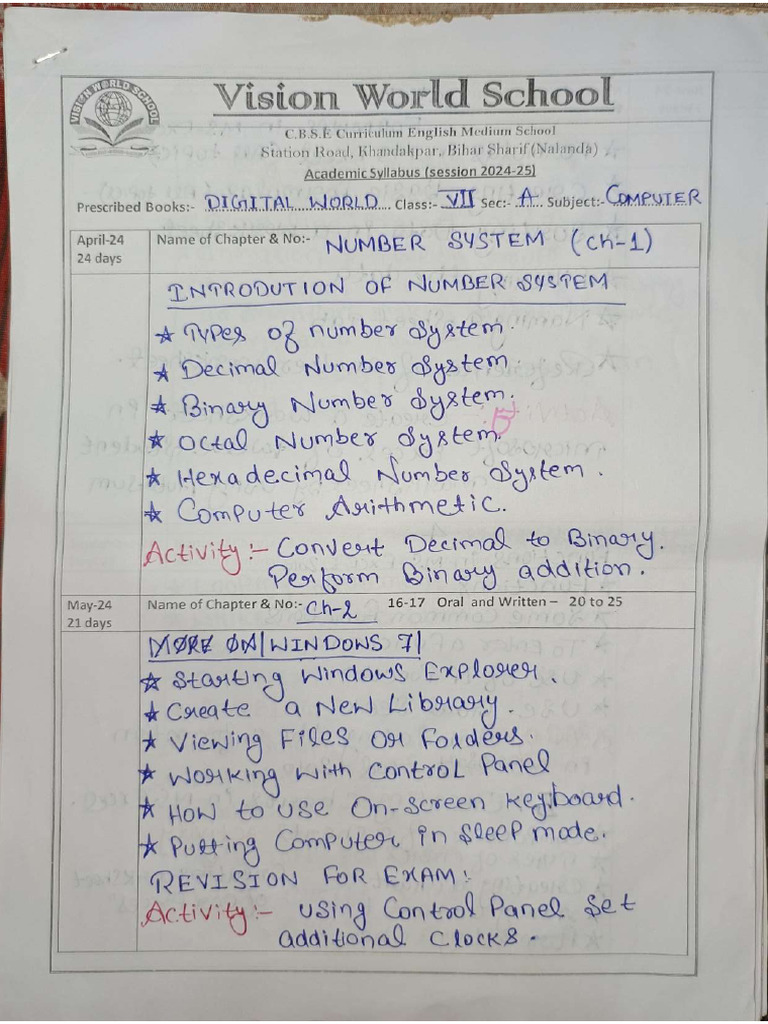 VISION WORLD SCHOOL
Vision World School
C.B.S.E Curriculum English Medium School
Station Road, Khandakpar, Bihar Sharif (Nalanda)
Academic Syllabus (session 2024-25)
Prescribed Books:- DIGITAL WORLD Class:- VII Sec:- A Subject:- COMPUTER
April-24 Name of Chapter & No:- NUMBER SYSTEM (Ch-1)
24 days
INTRODUTION OF NUMBER SYSTEM
☆ Types of number System.
☆ Decimal Number System.
☆ Binary Number System.
☆ Octal Number System.
☆ Hexadecimal Number System.
☆ Computer Arithmetic.
Activity:- Convert Decimal to Binary.
Perform Binary addition.
May-24 Name of Chapter & No:- Ch-2 16-17 Oral and Written – 20 to 25
21 days
MORE ON WINDOWS 7
☆ Starting Windows Explorer.
☆ Create a New Library.
☆ Viewing Files or Folders.
☆ Working with Control Panel
☆ How to use On-Screen Keyboard.
☆ Putting Computer in Sleep mode.
REVISION FOR EXAM:
Activity:- Using Control Panel Set
additional Clocks.